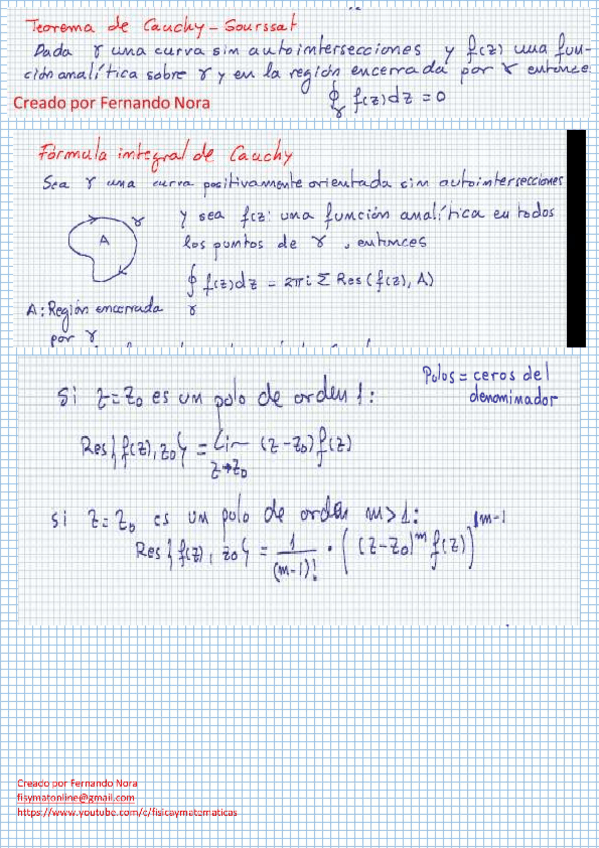 Teorema de Cauchy-Gourssat
Dada γ una curva sin autointersecciones y f(z) una fun-
ción analítica sobre γ y en la región encerrada por γ entonce
∮γ f(z)dz = 0
Creado por Fernando Nora
Fórmula integral de Cauchy
Sea γ una curva positivamente orientada sin autointersecciones
γ
y sea f(z) una función analítica en todos
A
los puntos de γ, entonces
∮γ f(z)dz = 2πi Σ Res(f(z), A)
A: Región encerrada
por γ
Polos = ceros del
denominador
Si z=z₀ es un polo de orden 1:
Res{f(z), z₀} = Lim z→z₀ (z-z₀)f(z)
Si z=z₀ es un polo de orden m>1:
Res{f(z), z₀} = 1/(m-1)! · ((z-z₀)^m f(z))^|m-1
Creado por Fernando Nora
fisymatonline@gmail.com
https://www.youtube.com/c/fisicaymatematicas